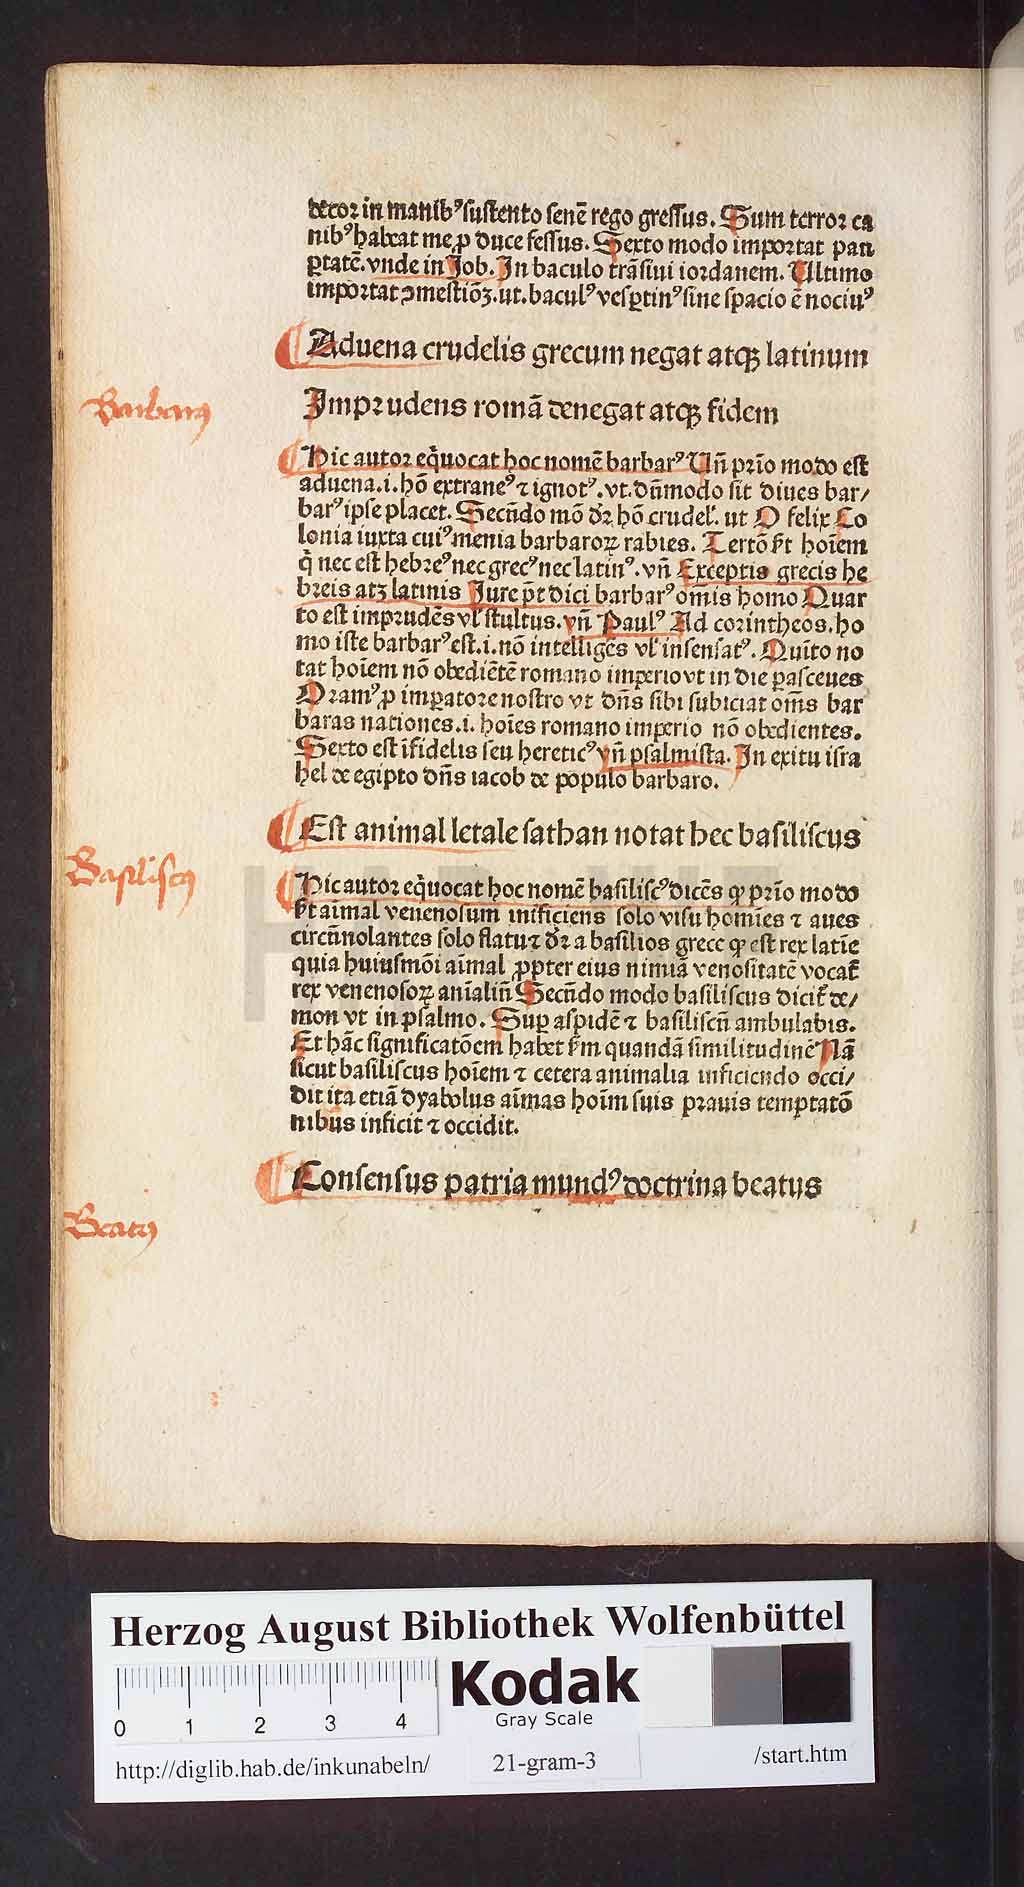 decor in manibꝰ sustento senē rego gressus. Sum terror ca
nibꝰ habeat me ꝓ duce fessus. Sexto modo importat pau
ꝑtatē. vnde in Job. In baculo trāsiui iordanem. Ultimo
importat ꝯmestiōꝫ. ut. baculꝰ vesꝑtinꝰ sine spacio ē nociuꝰ
¶ Aduena crudelis grecum negat atqꝫ latinum
Barbarꝰ
Imprudens romā denegat atqꝫ fidem
¶ Hic autor eq̄uocat hoc nomē barbarꝰ Uñ prīo modo est
aduena .i. hō extraneꝰ ⁊ ignotꝰ. vt. dn̄modo sit diues bar/
barꝰ ipse placet. Secn̄do mō dꝛ hō crudel̄. ut O felix Co
lonia iuxta cuiꝰ menia barbaroꝝ rabies. Tertō st hoīem
q̄ nec est hebreꝰ nec grecꝰ nec latinꝰ. vñ Exceptis grecis he
breis atꝫ latinis Jure pt̄ dici barbarꝰ om̄is homo Quar
to est imprudēs vl̄ stultus. vñ Paulꝰ Ad corintheos. ho
mo iste barbarꝰ est .i. nō intelligēs vl̄ insensatꝰ. Quīto no
tat hoīem nō obediētē romano imperio vt in die parasceues
Oramꝰ ꝓ imꝑatore nostro vt dn̄s sibi subiciat om̄s bar
baras nationes .i. hoīes romano imperio nō obedientes.
Sexto est īfidelis seu hereticꝰ vñ psalmista. In exitu isra
hel de egipto dn̄s iacob de populo barbaro.
¶ Est animal letale sathan notat hec basiliscus
Basiliscꝰ
¶ Hic autor eq̄uocat hoc nomē basiliscꝰ dicēs qꝫ prīo modo
st aīmal venenosum inificiens solo visu homīes ⁊ aues
circūuolantes solo flatu ⁊ dꝛ a basilios grece qꝫ est rex latīe
quia huiusmōi aīmal ꝓpter eius nimiā venositatē vocat̄
rex venenosoꝝ anīaliū Secn̄do modo basiliscus dicit̄ de/
mon vt in psalmo. Suꝑ aspidē ⁊ basiliscū ambulabis.
Et hāc significatōem habet sm̄ quandā similitudinē Nā
sicut basiliscus hoīem ⁊ cetera animalia inficiendo occi/
dit ita etiā dyabolus aīmas hoīm suis prauis temptatō
nibus inficit ⁊ occidit.
¶ Consensus patria mundꝰ doctrina beatus
Beatꝰ
Herzog August Bibliothek Wolfenbüttel
0 1 2 3 4
Kodak
Gray Scale
http://diglib.hab.de/inkunabeln/ 21-gram-3 /start.htm